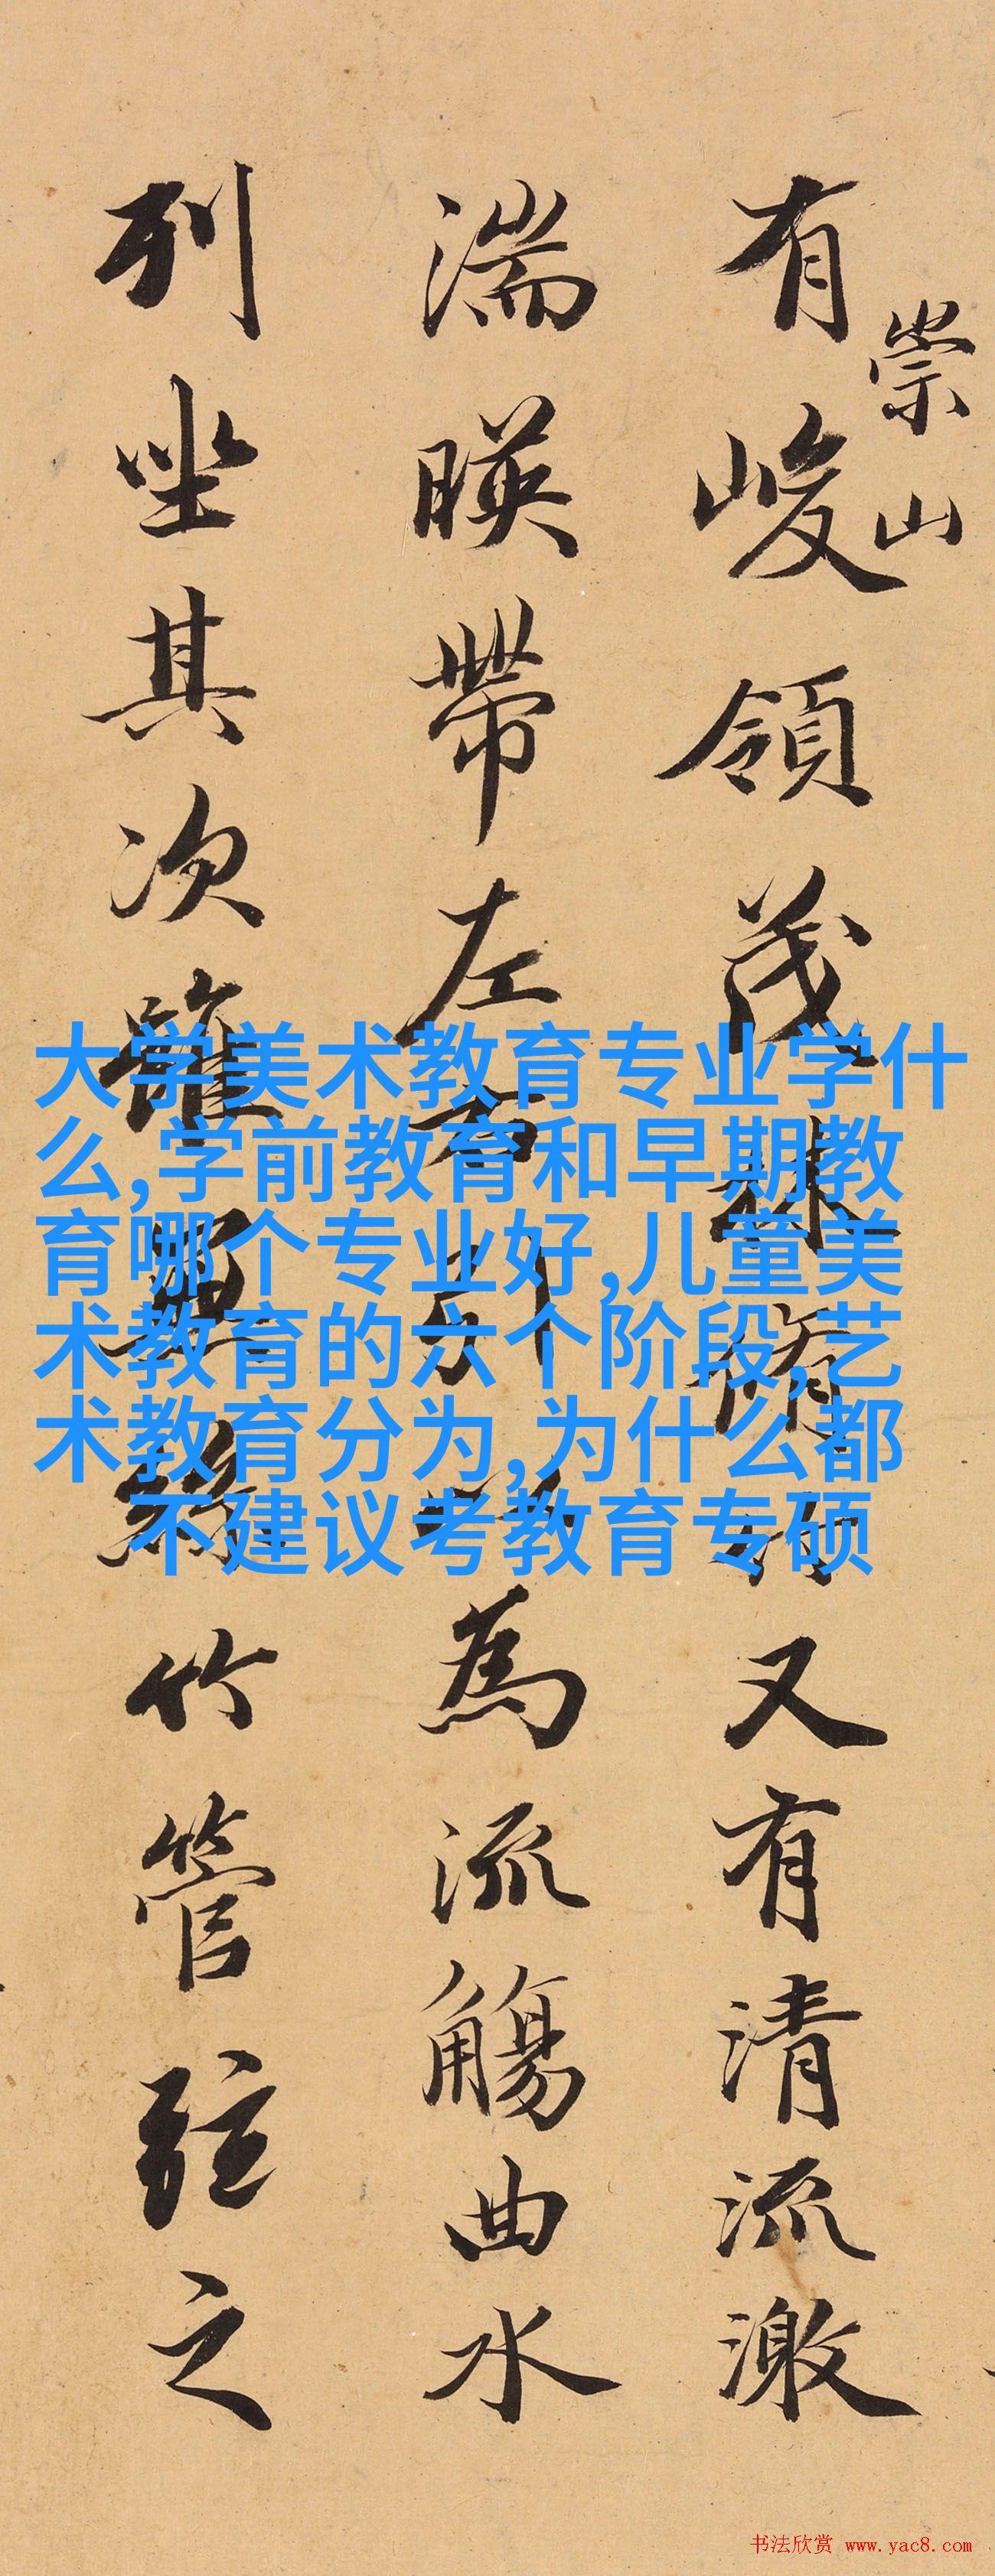 崇山
有峻領茂林脩竹又有清流激
湍暎帶左右引以為流觴曲水
列坐其次雖無絲竹管弦之
大学美术教育专业学什
么,学前教育和早期教
育哪个专业好,儿童美
术教育的六个阶段,艺
术教育分为,为什么都
不建议考教育专硕
书法欣赏 www.yac8.com